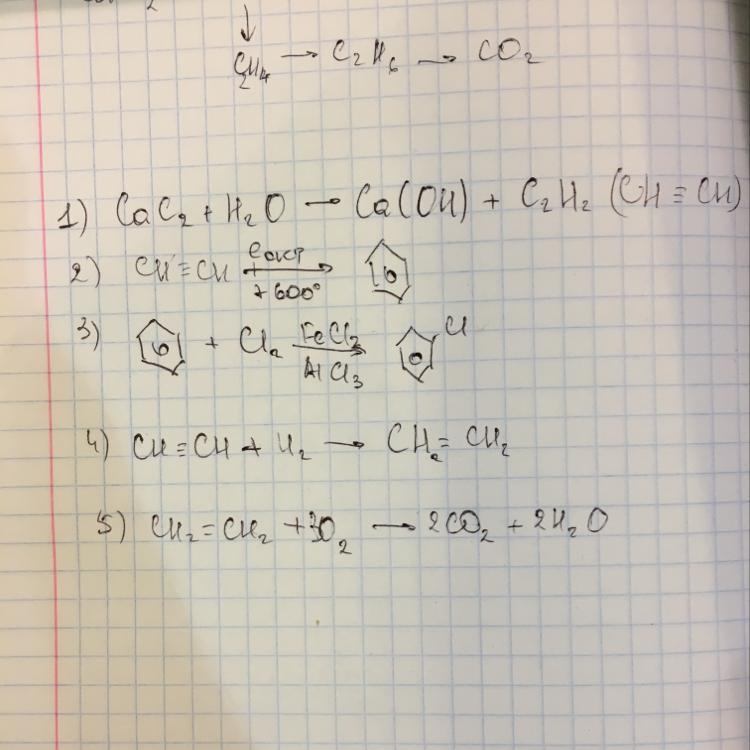 C₂H₄ → C₂H₆ → CO₂
1) CaC₂ + H₂O → Ca(OH) + C₂H₂ (CH ≡ CH)
2) CH ≡ CH → +600°
3) + Cl₂ FeCl₃ → AlCl₃ Cl
4) CH ≡ CH + H₂ → CH₂ = CH₂
5) CH₂ = CH₂ + 3O₂ → 2CO₂ + 2H₂O